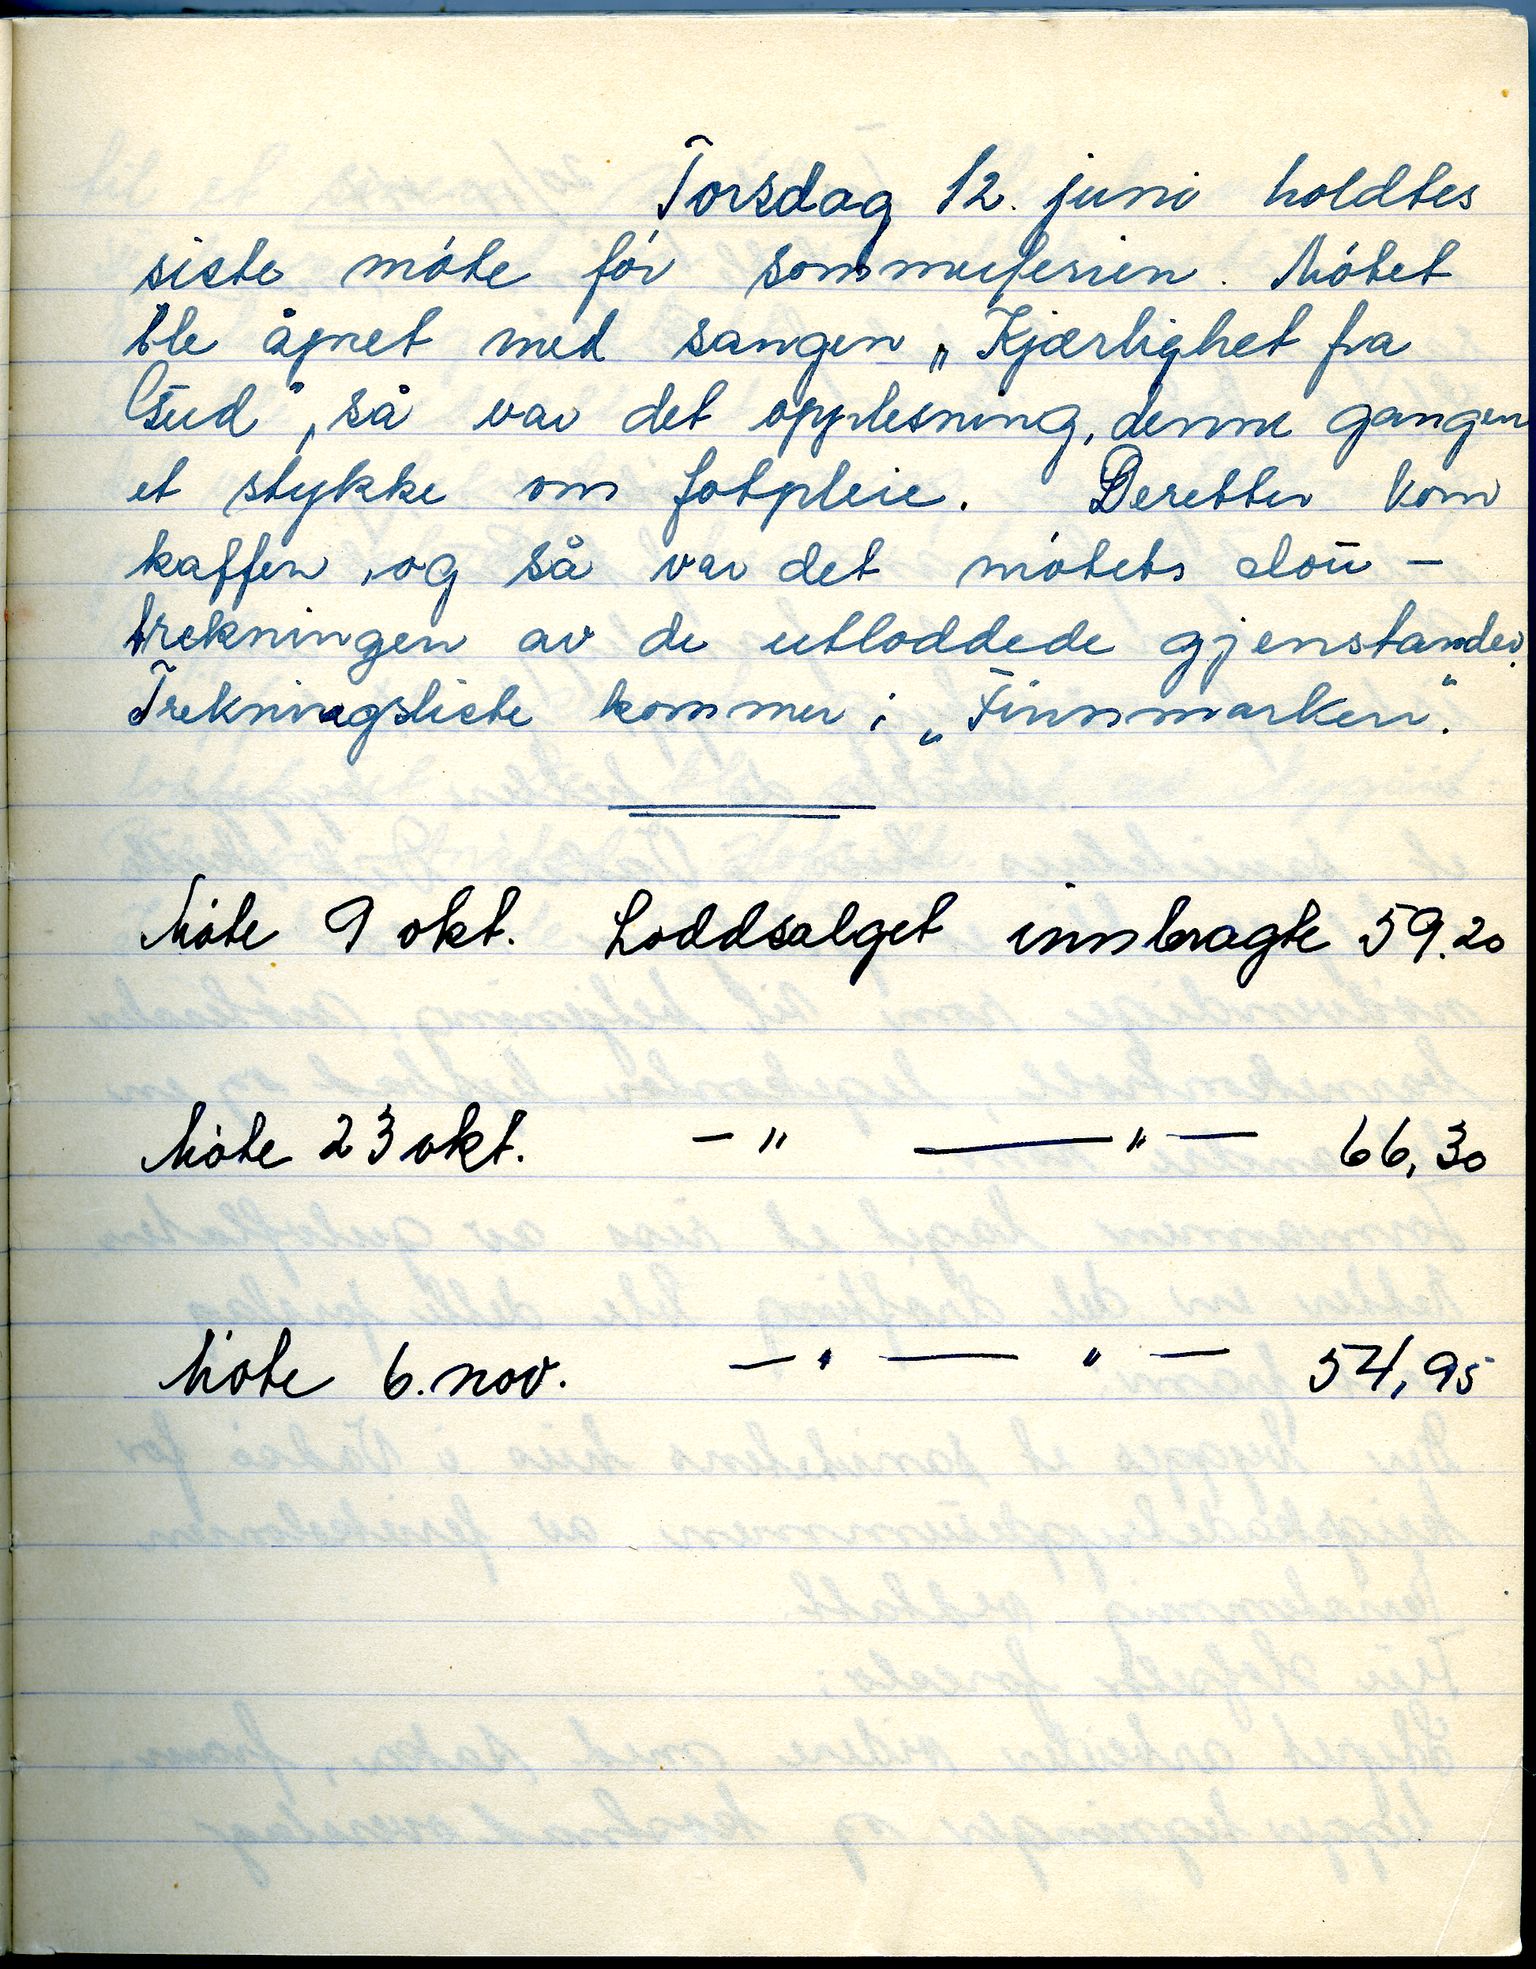 Torsdag 12. juni holdtes
siste møte før sommerferien. Møtet
ble åpnet med sangen „Kjærlighet fra
Gud", så var det opplesning, denne gangen
et stykke om fotpleie. Deretter kom
kaffen, og så var det møtets clou –
trekningen av de utloddede gjenstander.
Trekningsliste kommer i „Finnmarken".
Møte 9 okt. Loddsalget innbragte 59.20
Møte 23 okt. –"– ––"– 66,30
Møte 6. nov. –"– –"– 54,95